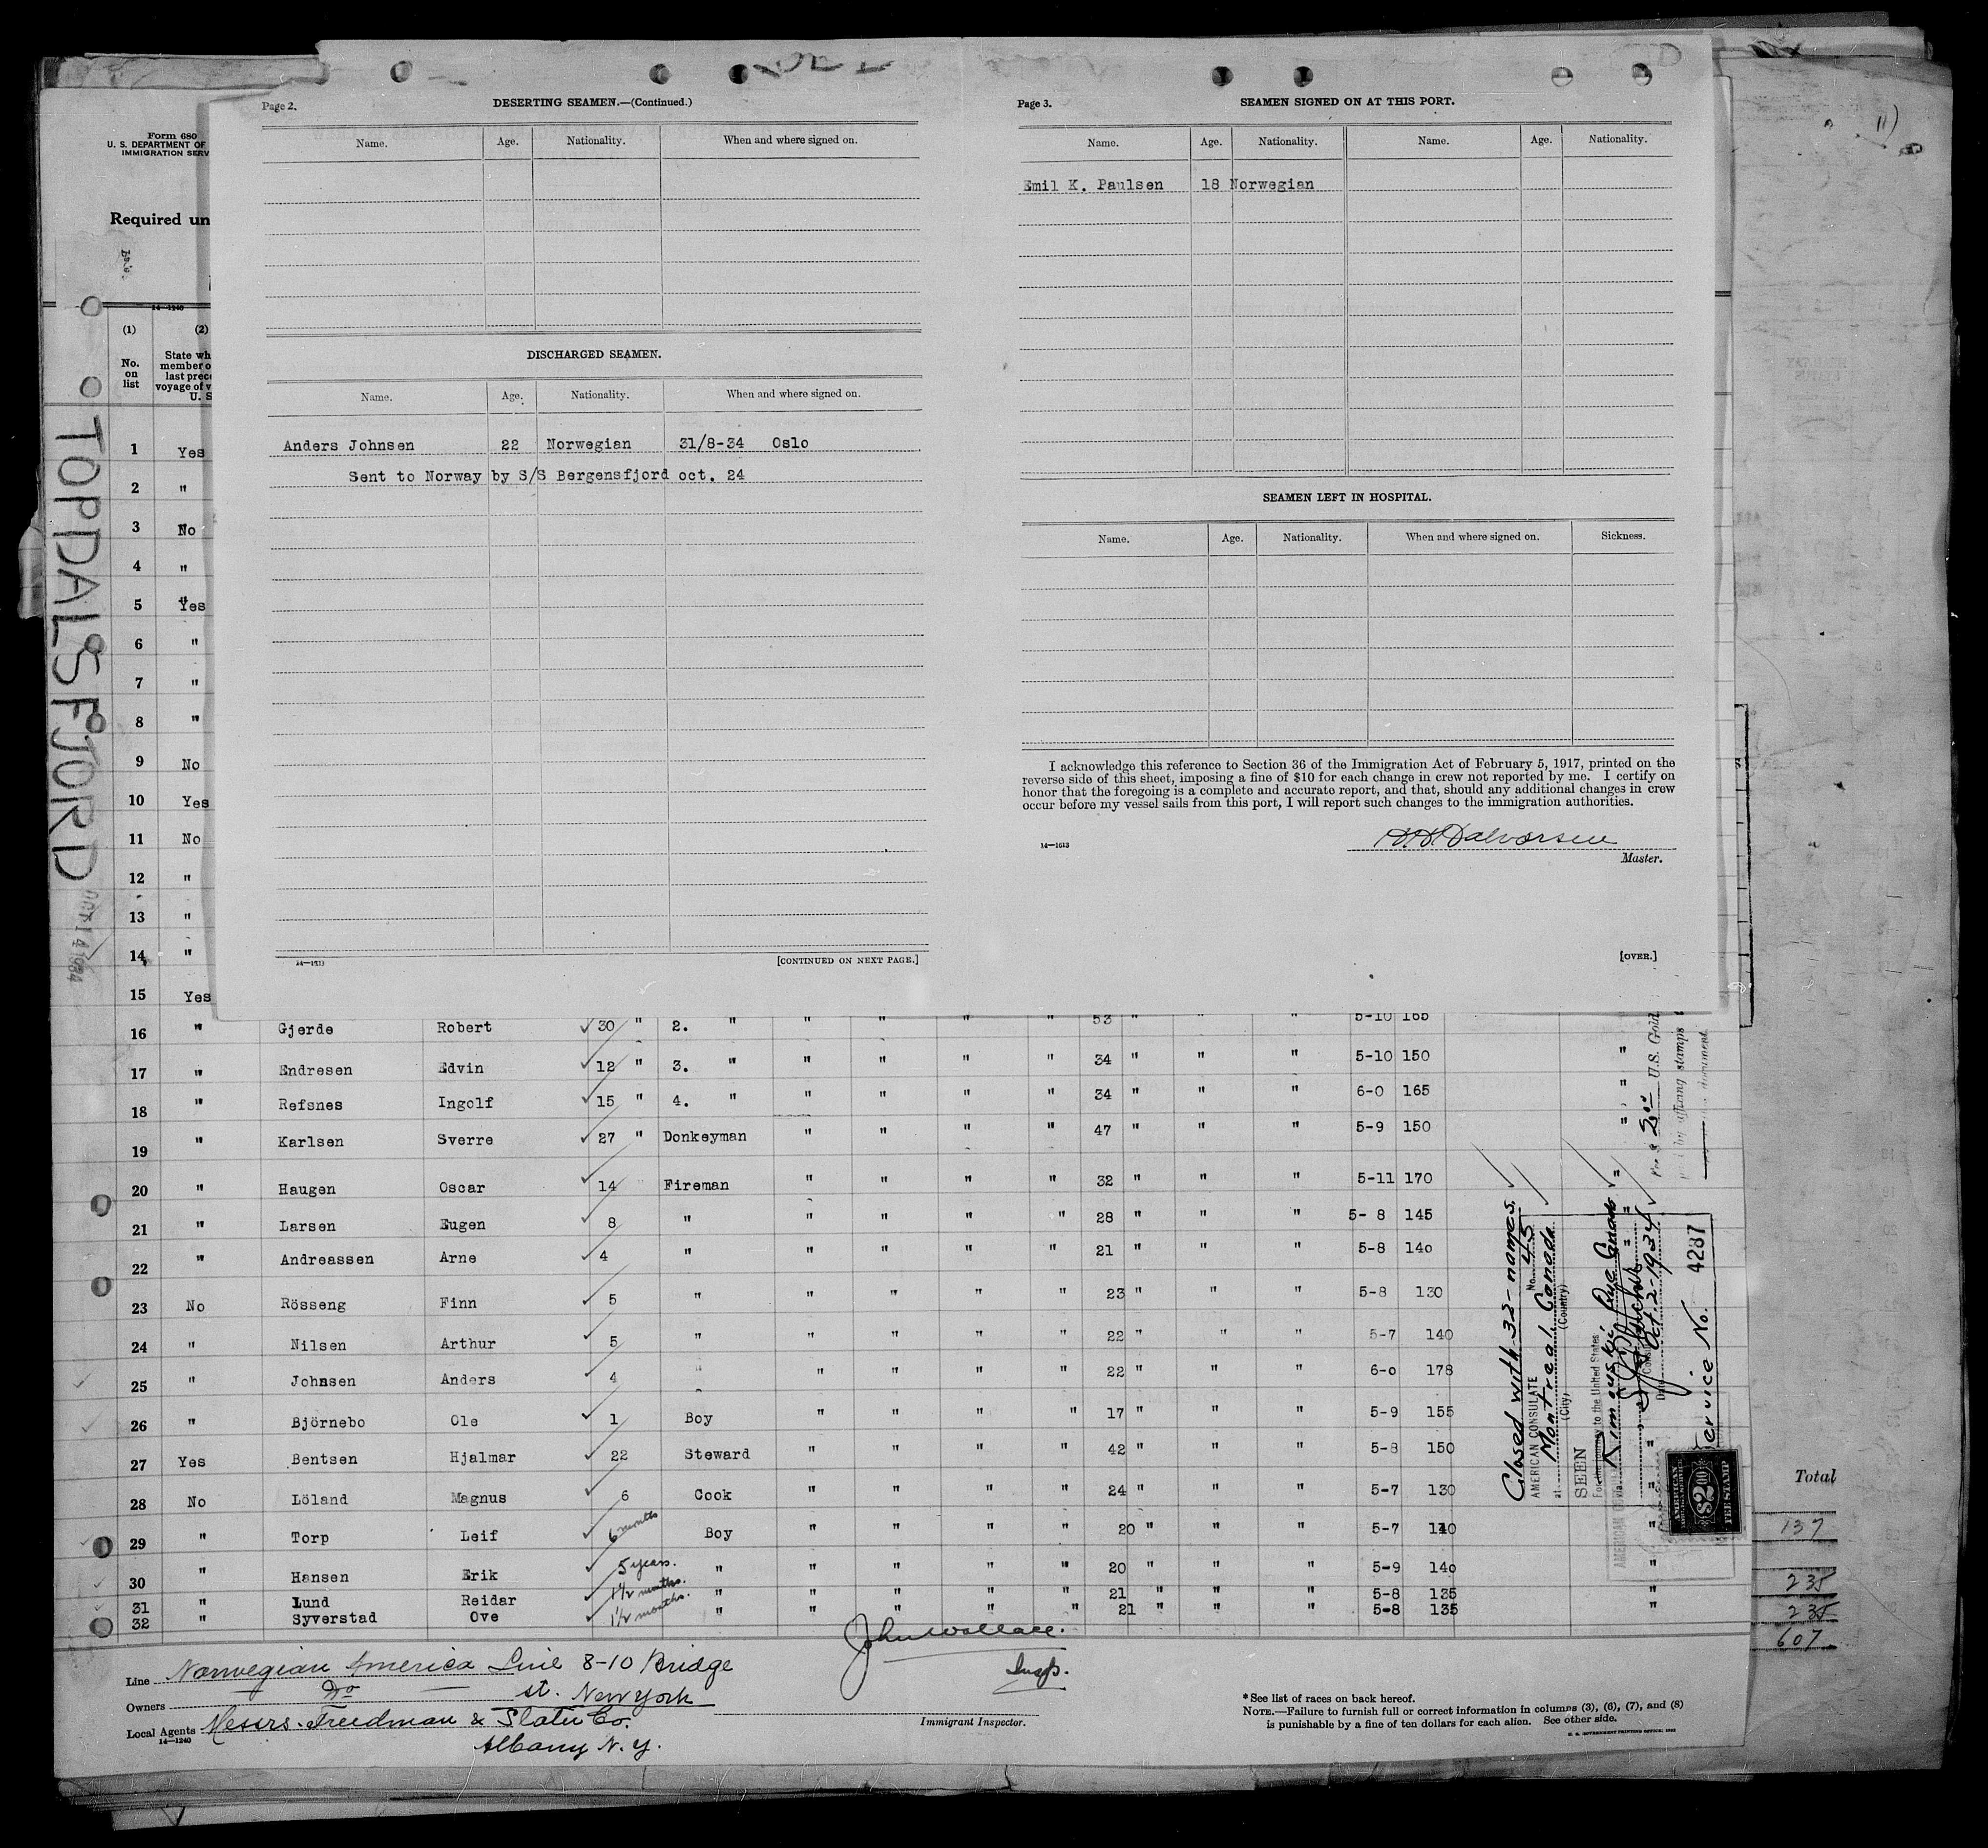 Form 680
U. S. DEPARTMENT OF
IMMIGRATION SERV
Required un
14—1240
(1) (2)
No. on list
State wh
member o
last prec
voyage of v
U. S
TOPDALSFJORD
OCT 14 1934
1 Yes
2 "
3 No
4 "
5 Yes
6 "
7 "
8 "
9 No
10 Yes
11 No
12 "
13 "
14 "
15 Yes
Page 2.
DESERTING SEAMEN.—(Continued.)
Name. Age. Nationality. When and where signed on.
DISCHARGED SEAMEN.
Name. Age. Nationality. When and where signed on.
Anders Johnsen 22 Norwegian 31/8-34 Oslo
Sent to Norway by S/S Bergensfjord oct. 24
14—1613
[CONTINUED ON NEXT PAGE.]
Page 3.
SEAMEN SIGNED ON AT THIS PORT.
Name. Age. Nationality. Name. Age. Nationality.
Emil K. Paulsen 18 Norwegian
SEAMEN LEFT IN HOSPITAL.
Name. Age. Nationality. When and where signed on. Sickness.
I acknowledge this reference to Section 36 of the Immigration Act of February 5, 1917, printed on the
reverse side of this sheet, imposing a fine of $10 for each change in crew not reported by me. I certify on
honor that the foregoing is a complete and accurate report, and that, should any additional changes in crew
occur before my vessel sails from this port, I will report such changes to the immigration authorities.
Halvorsen
14—1613
Master.
[OVER.]
16 " Gjerde Robert 30 " 2. " " " " " 53 " " " 5-10 165
17 " Endresen Edvin 12 " 3. " " " " " 34 " " " 5-10 150 "
18 " Refsnes Ingolf 15 " 4. " " " " " 34 " " " 6-0 165 "
19 " Karlsen Sverre 27 " Donkeyman " " " " 47 " " " 5-9 150 "
20 " Haugen Oscar 14 Fireman " " " " 32 " " " 5-11 170 "
21 " Larsen Eugen 8 " " " " " 28 " " " 5- 8 145 "
22 " Andreassen Arne 4 " " " " " 21 " " " 5-8 140 "
23 No Rösseng Finn 5 " " " " " 23 " " " 5-8 130
24 " Nilsen Arthur 5 " " " " " 22 " " " 5-7 140
25 " Johnsen Anders 4 " " " " " 22 " " " 6-0 178
26 " Björnebo Ole 1 Boy " " " " 17 " " " 5-9 155
27 Yes Bentsen Hjalmar 22 Steward " " " " 42 " " " 5-8 150 "
28 No Löland Magnus 6 Cook " " " " 24 " " " 5-7 130 "
29 " Torp Leif 6 months Boy " " " " 20 " " " 5-7 140 "
30 " Hansen Erik 5 years. " " " " " 20 " " " 5-9 140 "
31 " Lund Reidar 1½ months. " " " " " 21 " " " 5-8 135 "
32 " Syverstad Ove 1½ months. " " " " " 21 " " " 5-8 135 "
Closed with 32 names.
AMERICAN CONSULATE No. 45
at Montreal Canada
(City) (Country)
SEEN
For the journey to the United States
via Rimouski, Que Canada
Date Oct. 2-1934
Service No. 4287
U.S. Gold
affixing stamps
document
AMERICAN
$2.00
FEE STAMP
Total
137
235
235
607
Line Norwegian America Line 8-10 Bridge
Owners Do st. New York
Local Agents Messrs. Freedman & Slater Co.
14—1240
Albany N. Y.
John Wallace.
Insp.
Immigrant Inspector.
* See list of races on back hereof.
NOTE.—Failure to furnish full or correct information in columns (3), (6), (7), and (8)
is punishable by a fine of ten dollars for each alien. See other side.
U. S. GOVERNMENT PRINTING OFFICE: 1932